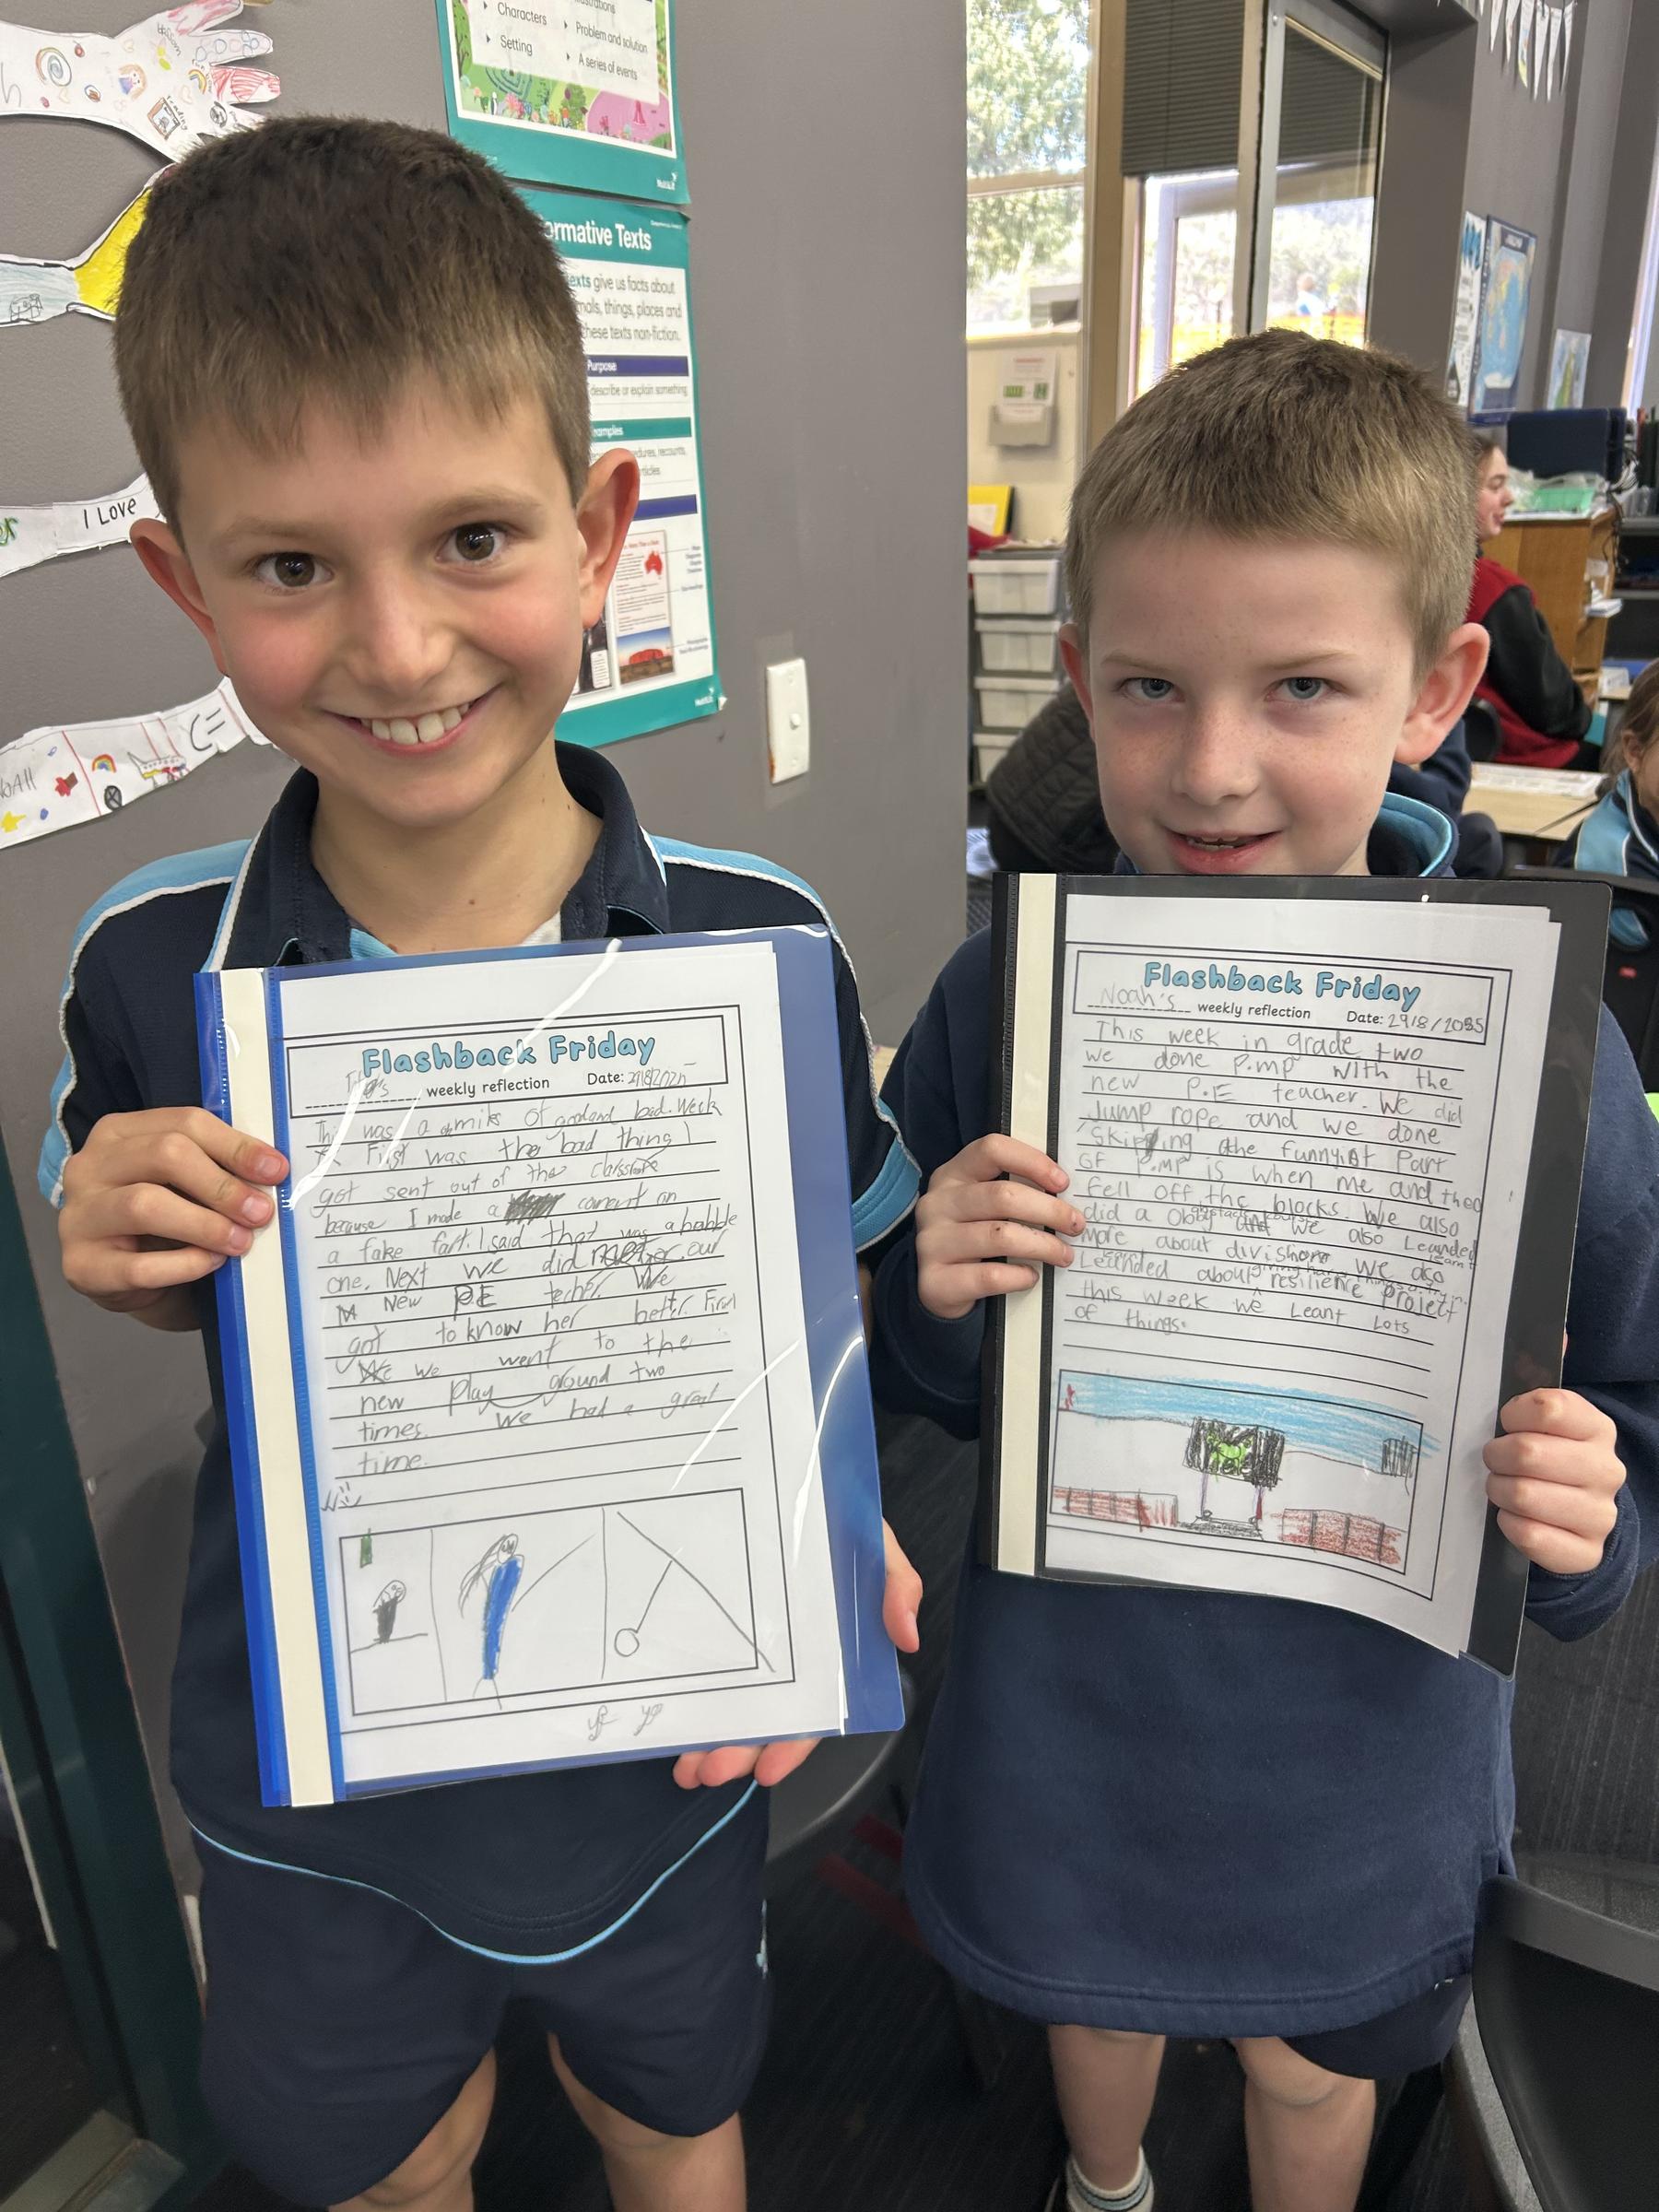 Characters
Setting
Problem and solution
A series of events
ormative Texts
exts give us facts about
mals, things, places and
these texts non-fiction.
Purpose
describe or explain something
amples
recounts,
I Love
C=
bAll
Flashback Friday
weekly reflection Date: 29/8/2025
This was a mix of good and bad. Week
First was the bad thing I
got sent out of the
because I made a coment on
a fake fart. I said that was a babble
one. Next we did our
New PE techer. We
got to know her better. First
we went to the
new play ground two
times. We had a great
time.
Flashback Friday
Noah's weekly reflection Date: 29/8/2035
This week in grade two
we done P.mp with the
new P.E teacher. We did
Jump rope and we done
Skipping the funnyist Part
OF P.mp is when me and theo
fell off the blocks. We also
obstacle course
did a Obby and we also Leanded
more about division we also
learnt
Leanded about resilience Project
this week we Leant Lots
of things.